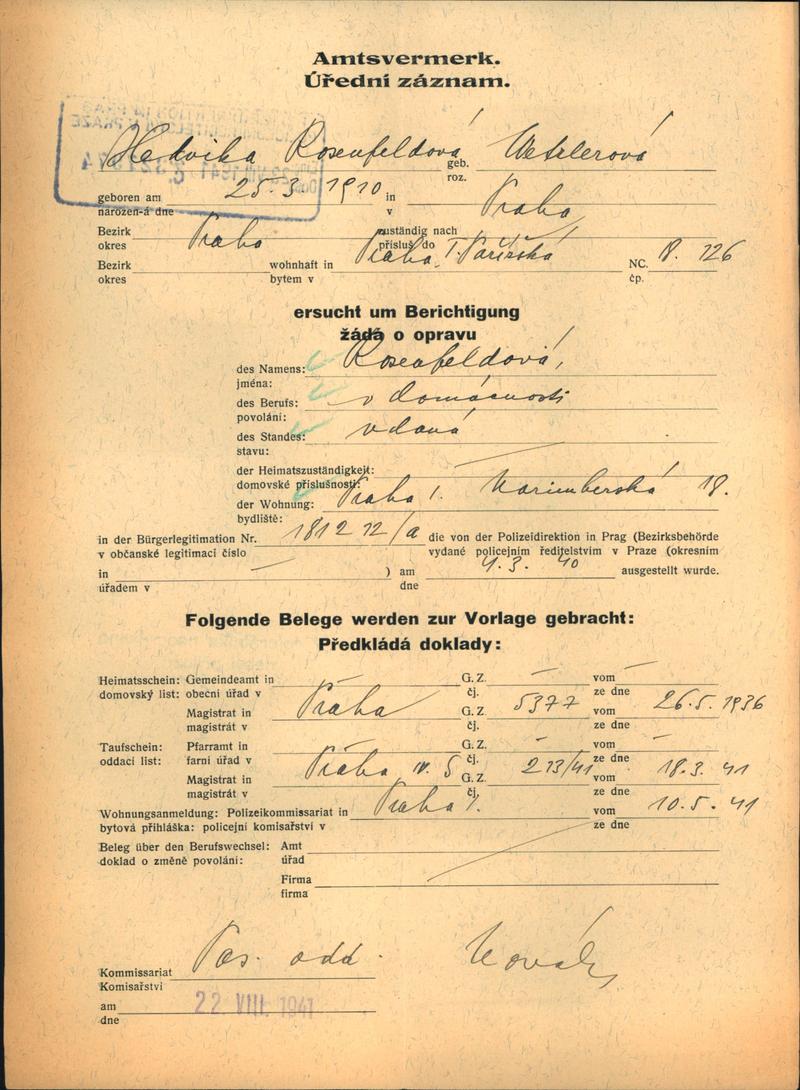 Amtsvermerk.
Úřední záznam.
Hedvika Rosenfeldová geb. Wetzlerová
roz.
geboren am 25.3. 1910 in Praha
narozen-á dne v
Bezirk Praha zuständig nach
okres přísluš. do Praha I. Pařížská
Bezirk wohnhaft in NC. 8. 126
okres bytem v čp.
ersucht um Berichtigung
žádá o opravu
des Namens: Rosenfeldová,
jména:
des Berufs: v domácnosti
povolání:
des Standes: vdaná
stavu:
der Heimatszuständigkeit: —
domovské příslušnosti:
der Wohnung: Praha I. Norimberská 18.
bydliště:
in der Bürgerlegitimation Nr. 181272/a die von der Polizeidirektion in Prag (Bezirksbehörde
v občanské legitimaci číslo vydané policejním ředitelstvím v Praze (okresním
in — ) am 4.3. 40 ausgestellt wurde.
úřadem v dne
Folgende Belege werden zur Vorlage gebracht:
Předkládá doklady:
Heimatsschein: Gemeindeamt in — G. Z. — vom —
domovský list: obecní úřad v čj. ze dne
Magistrat in Praha G. Z. 5377 vom 26.5. 1936
magistrát v čj. ze dne
Taufschein: Pfarramt in — G. Z. — vom —
oddací list: farní úřad v čj. ze dne
Magistrat in Praha IV. 5 G. Z. 213/41 vom 18.3. 41
magistrát v čj. ze dne
Wohnungsanmeldung: Polizeikommissariat in Praha I. vom 10.5. 41
bytová přihláška: policejní komisařství v ze dne
Beleg über den Berufswechsel: Amt
doklad o změně povolání: úřad
Firma
firma
Kommissariat Pas. odd. Novák
Komisařství
am 22. VIII. 1941
dne